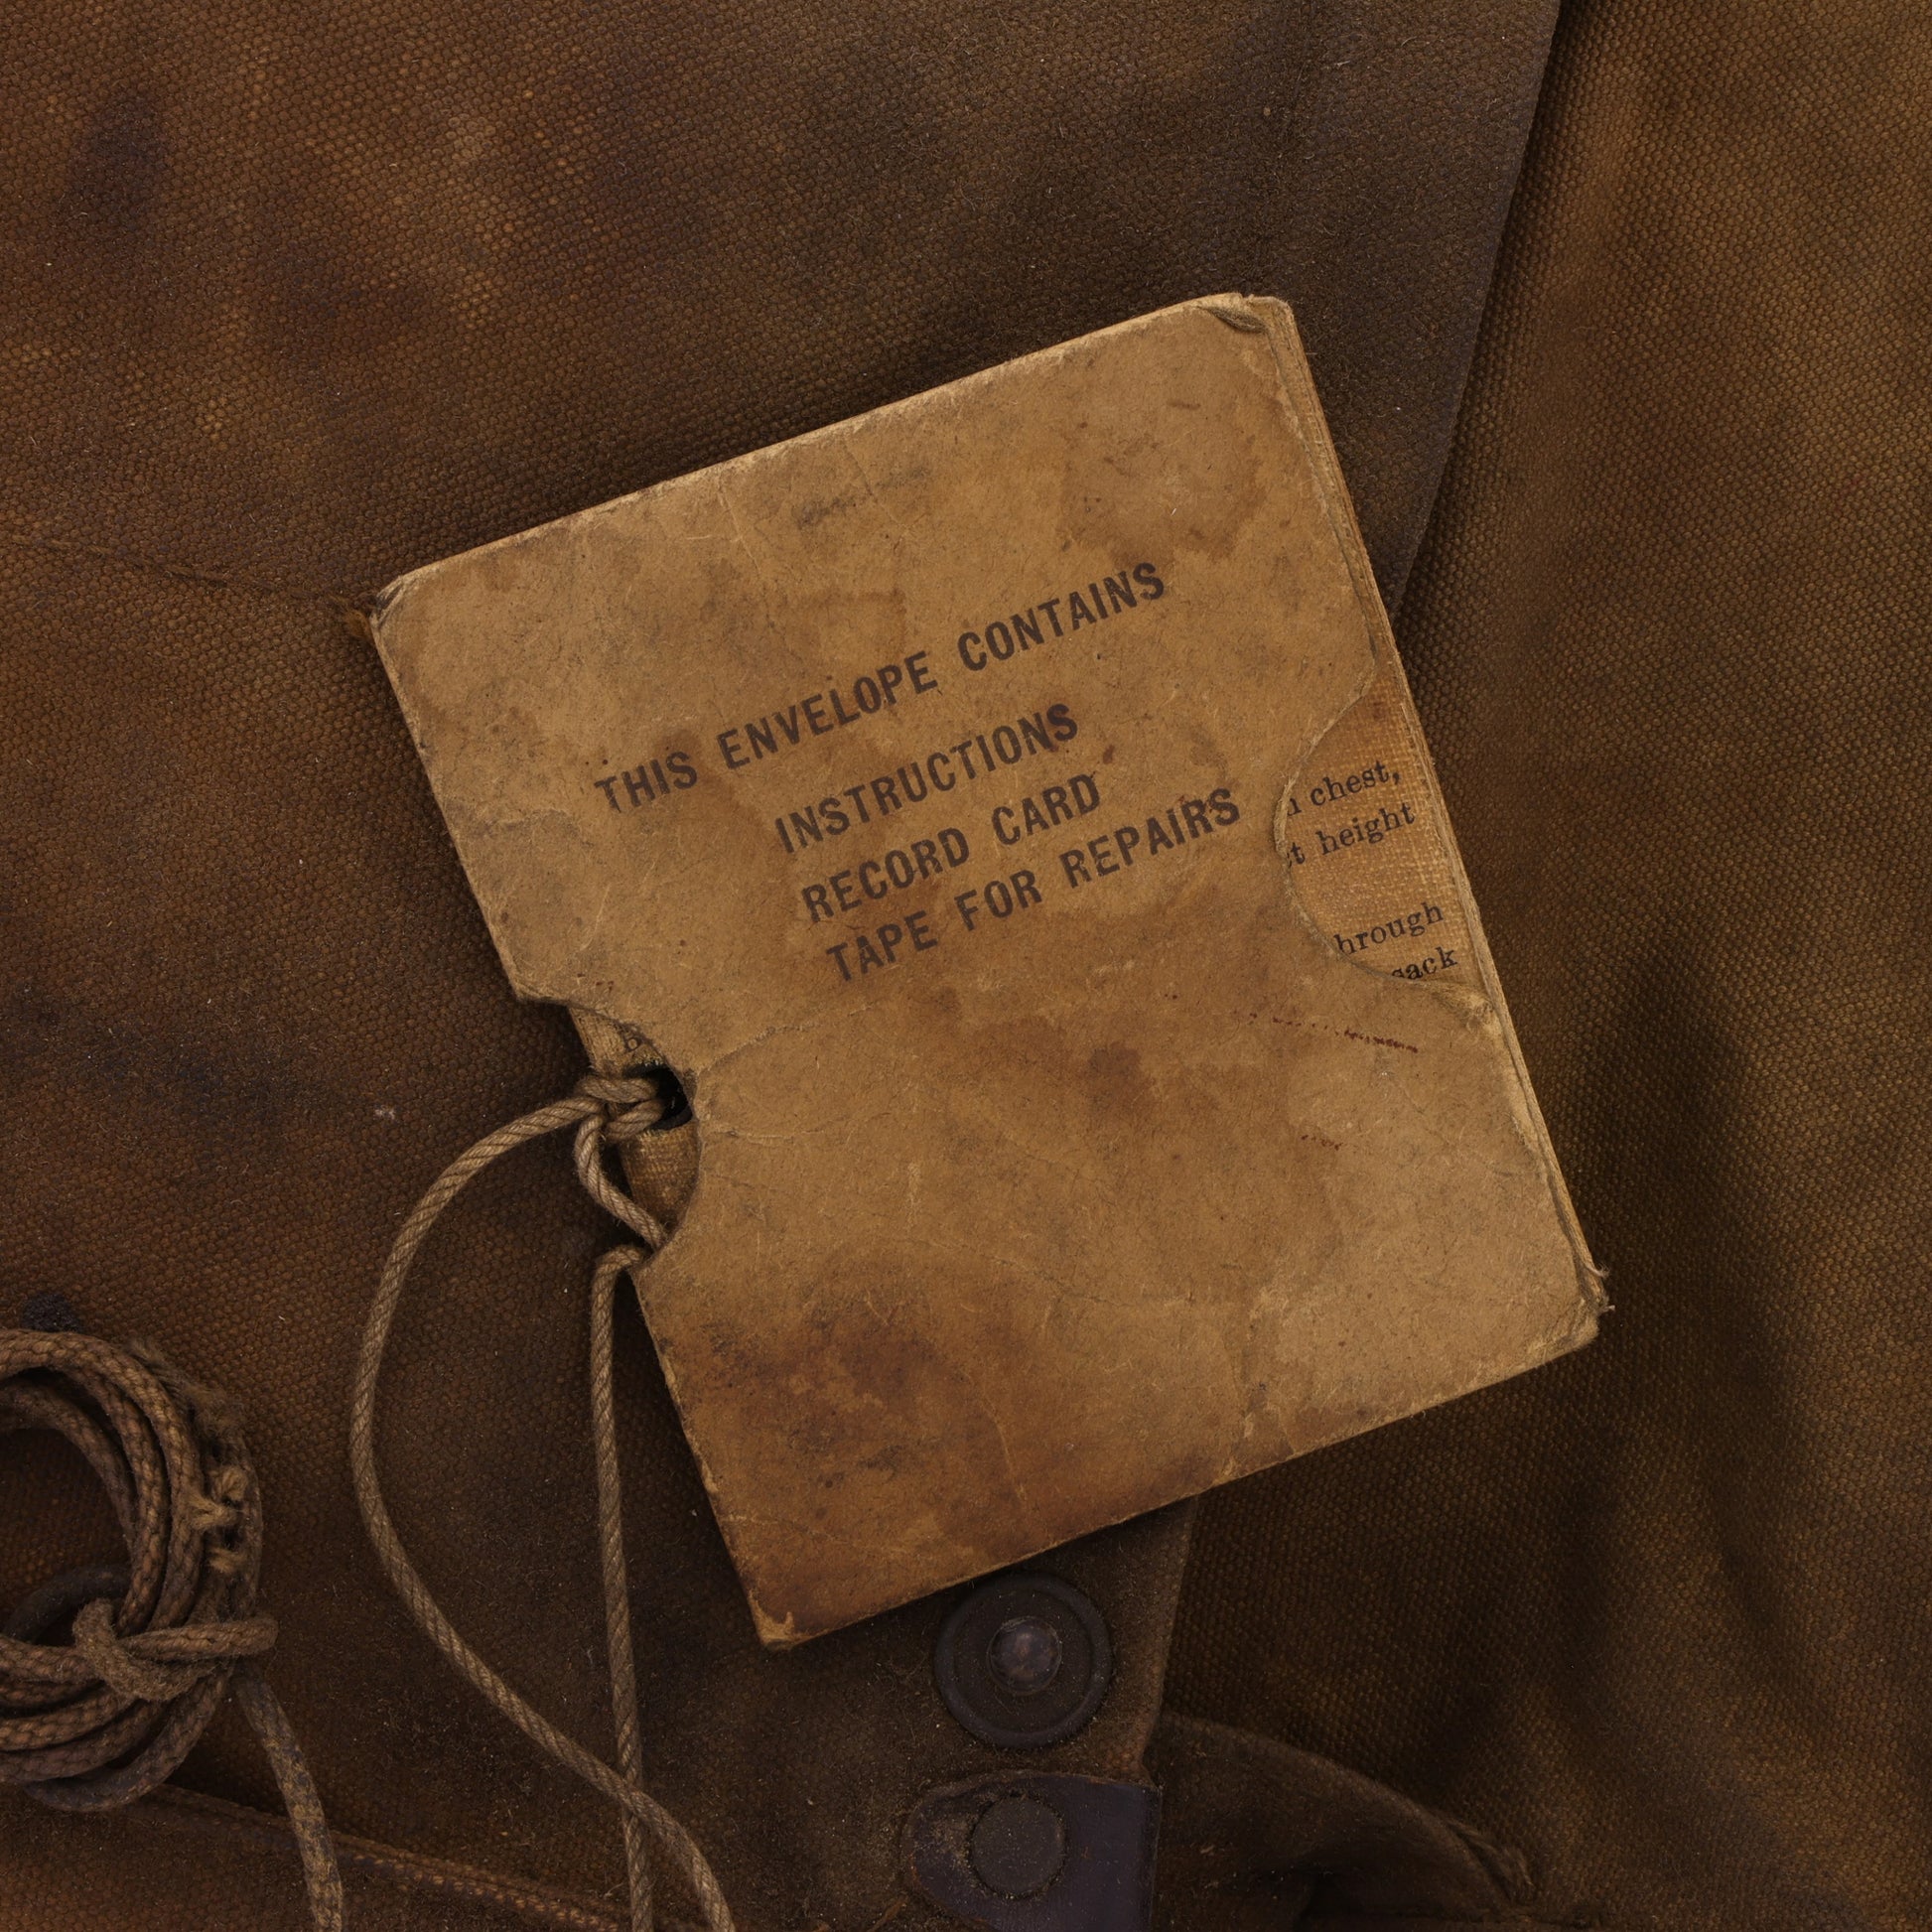 THIS ENVELOPE CONTAINS
INSTRUCTIONS
RECORD CARD
TAPE FOR REPAIRS
chest,
height